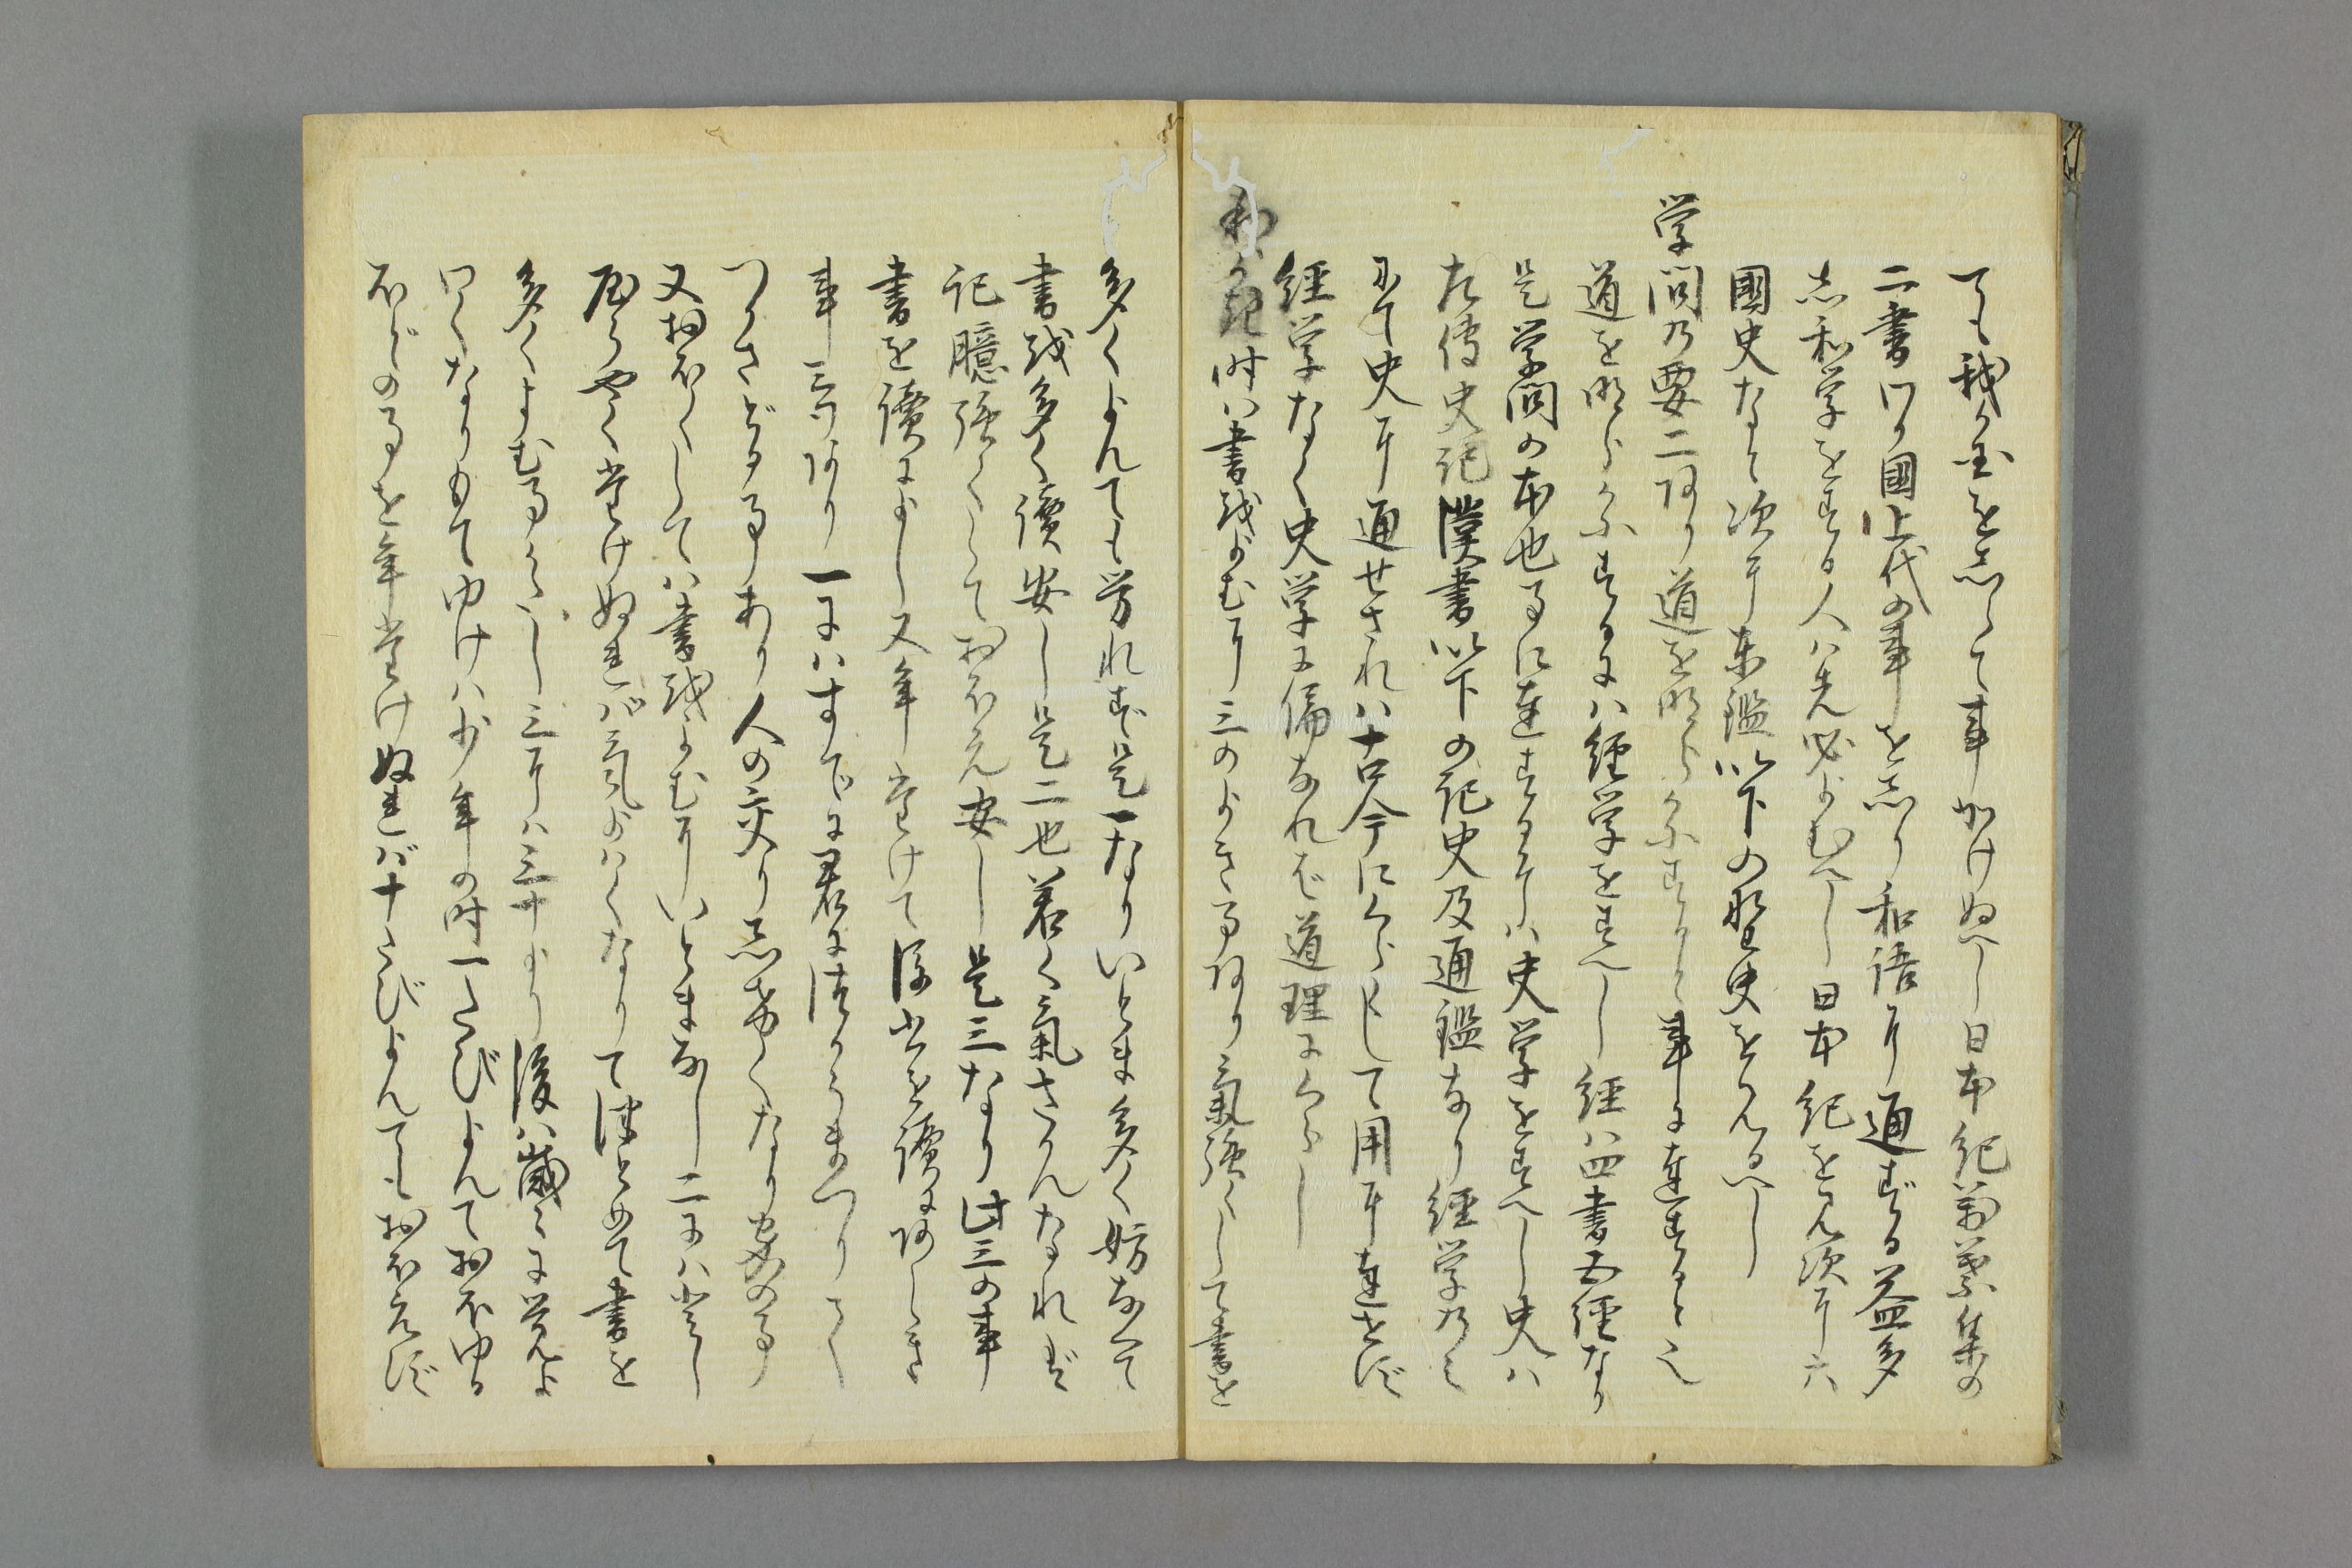 ても我か玉をしらて事かけぬへし日本紀萬葉集の
二書ハわか國上代の事を志り和語に通ずる益多
志和学をする人ハ先必よむへし日本紀を見次に六
國史なと次に東鑑以下の野史をみるへし
学問乃要二あり道を明らかにすると事に達すると也
道を明らかにするにハ經学をすへし經ハ四書五經なり
是学問の本也事に達するにハ史学をすへし史ハ
左傳史記漢書以下の記史及通鑑なり經学のミ
にて史に通せされハ古今にくらくして用に達せず
經学なく史学に偏なれば道理にくらし
わかき時ハ書をよむに三のよき事あり氣強くして書を
多くよんても労れず是一なりいとま多く妨なくて
書を多く讀安し是二也若く氣さかんなれば
記臆強くしておほえ安し是三なり此三の事
書を讀によし又年たけて後書を讀にあしき
事三あり一にハすてに君に仕うまつりてハ
つかさどる事あり人の交り志げくなり家の事
又おほくしてハ書をよむにいとまなし二にハたし
やうやくたけぬれバ氣よハくなりてつとめて書を
多くよむ事かたし三にハ三十より後ハ歳々に覚よ
ハくなりもてゆけハ少年の時一たびよんておほゆる
ほどの事を年たけぬれバ十たびよんてもおほえず